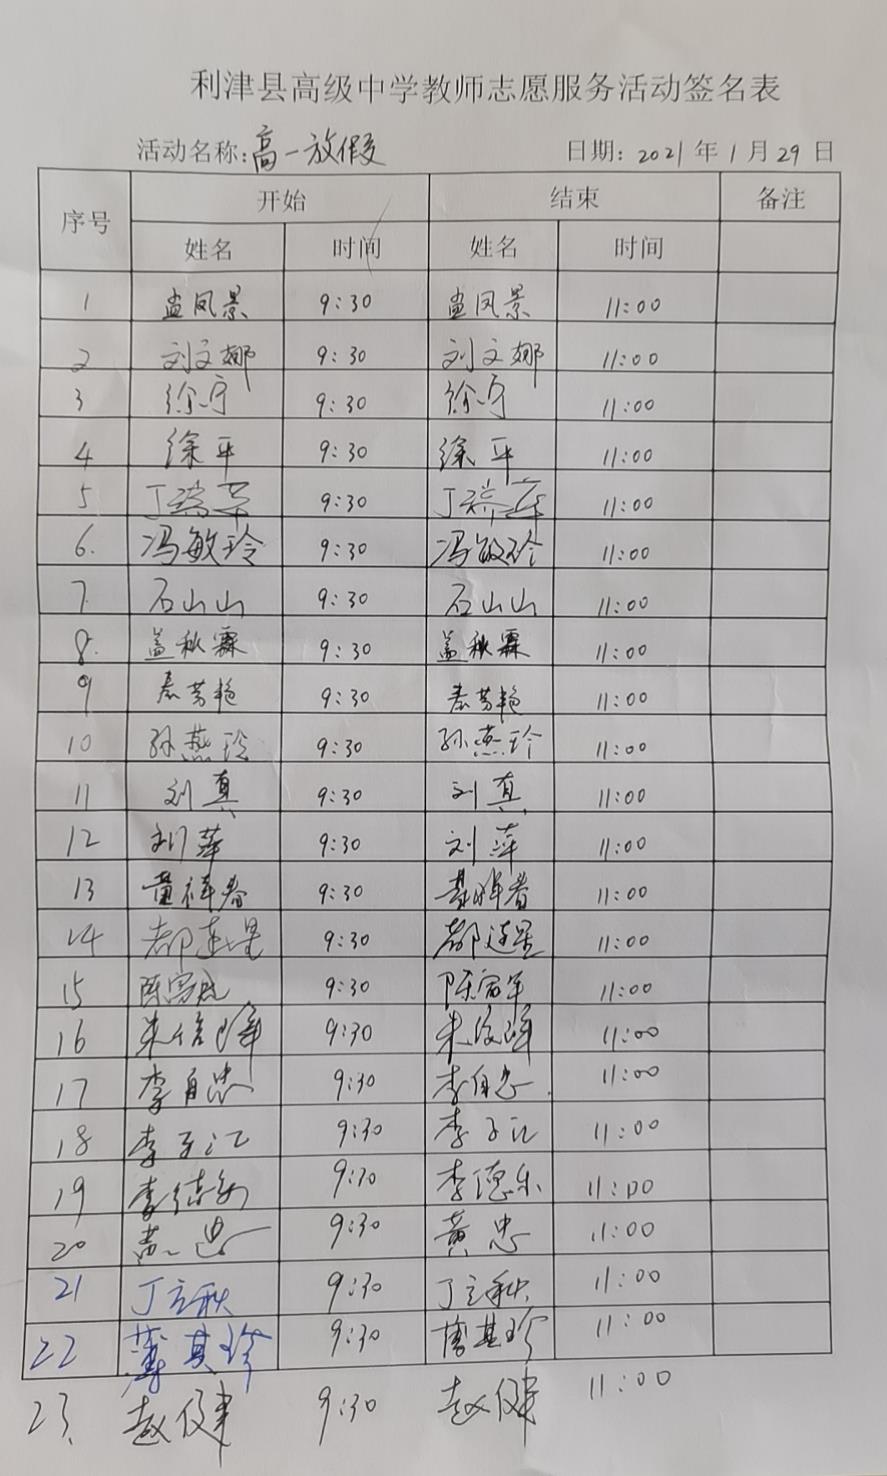 利津县高级中学教师志愿服务活动签名表
活动名称:高一放假 日期: 2021 年 1 月 29 日
序号 开始 结束 备注
姓名 时间 姓名 时间
1 孟凤景 9:30 孟凤景 11:00
2 刘文娜 9:30 刘文娜 11:00
3 徐宁 9:30 徐宁 11:00
4 徐平 9:30 徐平 11:00
5 丁瑞 9:30 丁瑞 11:00
6. 冯敏玲 9:30 冯敏玲 11:00
7 石山山 9:30 石山山 11:00
8. 盖秋霖 9:30 盖秋霖 11:00
9 秦芳艳 9:30 秦芳艳 11:00
10 孙燕玲 9:30 孙燕玲 11:00
11 刘真 9:30 刘真 11:00
12 刘萍 9:30 刘萍 11:00
13 9:30 11:00
14 都连星 9:30 都连星 11:00
15 陈 9:30 陈 11:00
16 朱 9:30 朱 11:00
17 李自忠 9:30 李自忠 11:00
18 李子江 9:30 李子江 11:00
19 李德乐 9:30 李德乐 11:00
20 黄忠 9:30 黄忠 11:00
21 丁立秋 9:30 丁立秋 11:00
22 薄其珍 9:30 薄其珍 11:00
23. 赵俊 9:30 赵俊 11:00